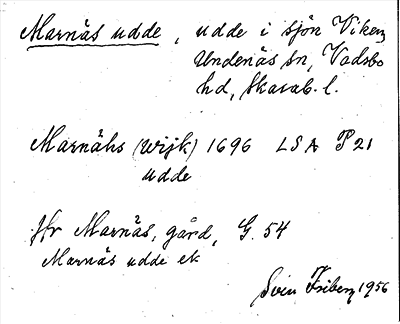 Marnäs udde, udde i sjön Viken,
Undenäs sn, Vadsbo
hd, Skarab. l.
Marnähs (wijk) 1696 LSA P 21
udde
Jfr Marnäs, gård, G. 54
Marnäs udde ek
Sven Friberg 1956